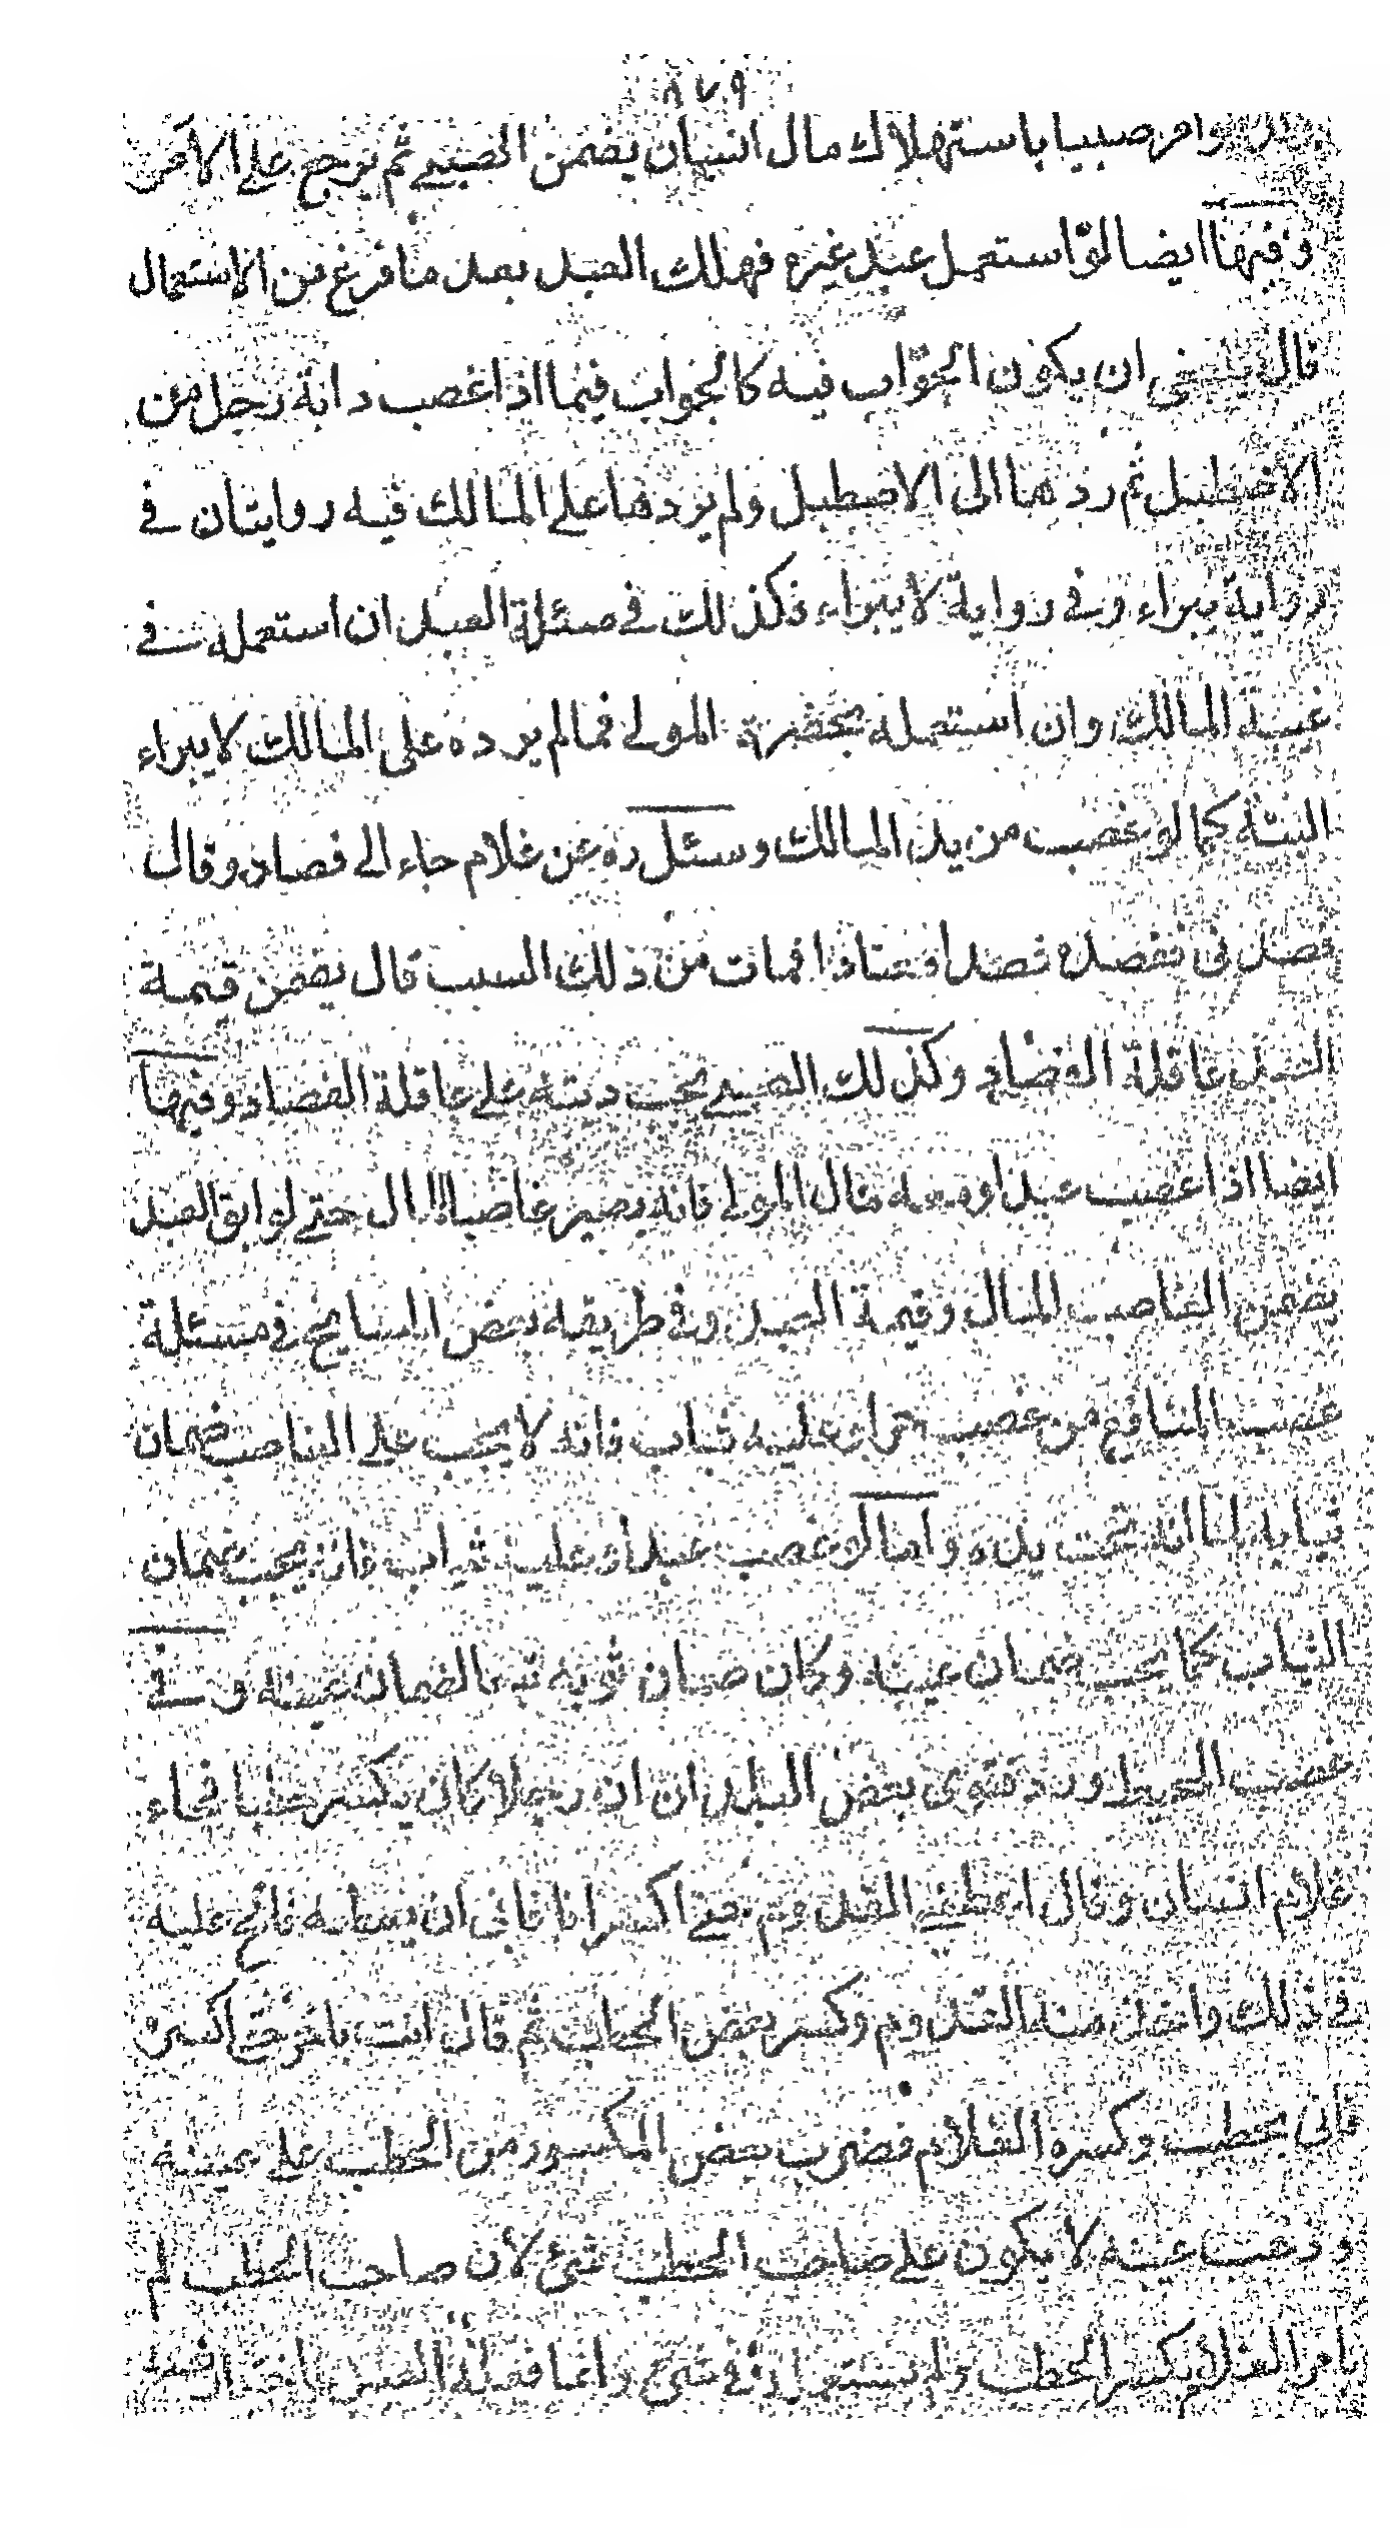 ٨٧٩
وامر صبيا باستهلاك مال انسان يضمن الصبي ثم يرجع على الامر
وفيها ايضا لو استعمل عبد غيره فهلك العبد بعد ما فرغ من الاستعمال
قال ينبغي ان يكون الجواب فيه كالجواب فيما اذا غصب دابة رجل من
الاصطبل ثم ردها الى الاصطبل ولم يردها على المالك فيه روايتان في
رواية يبراء وفي رواية لا يبراء وكذلك في مسئلة العبد ان استعمله في
غيبة المالك وان استعمله بحضرة المولى فمالم يرده على المالك لا يبراء
البتة كما لو غصب من يد المالك وسئل ره عن غلام جاء الى فصاد وقال
فصدني ففصده فصدا معتادا فمات من ذلك السبب قال يضمن قيمة
العبد عاقلة الفصاد وكذلك الصبي يجب ديته على عاقلة الفصاد وفيها
ايضا اذا غصب عبدا ومعه مال المولى فانه يصير غاصبا المال حتى لو ابق العبد
يضمن الغاصب المال وقيمة العبد وفي طريقه بعض المشايخ في مسئلة
غصب المنافع من غصب حرا وعليه ثياب فانه لا يجب على الغاصب ضمان
ثيابه لما انه تحت يده واما لو غصب عبدا وعليه ثياب فانه يجب ضمان
الثياب كما يجب ضمان عينه وكان ضمان ثوبه تبعا لضمان عينه وفي
غصب المحيط ورد فتوى بعض البلدان ان رجلا كان يكسر حطبا فجاء
غلام انسان وقال اعطني القدوم حتى اكسر انا فابى ان يعطيه فالح عليه
في ذلك واخذ منه القدوم وكسر بعض الحطب ثم قال ائت باخر حتى اكسره
فاتى بحطب وكسره الغلام فضرب بعض المكسور من الحطب على عينه
وذهبت عينه لا يكون على صاحب الحطب شئ لان صاحب الحطب لم
يامر الغلام بكسر الحطب ولم يستعمله في شئ وانما فعله الغلام باختياره